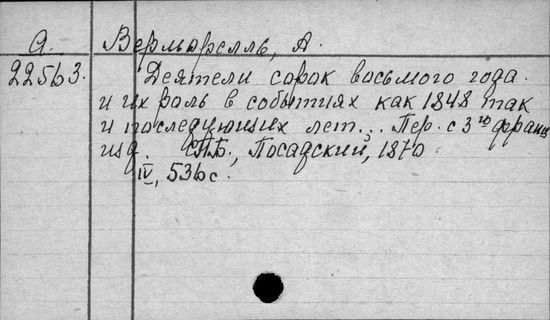 А. Верморелль, А.
22563. Деятели сорок восьмого года
и их роль в событиях как 1848 так
и последующих лет... Пер. с 3го франц
изд. СПБ., Посадский, 1870
IV, 536 с.